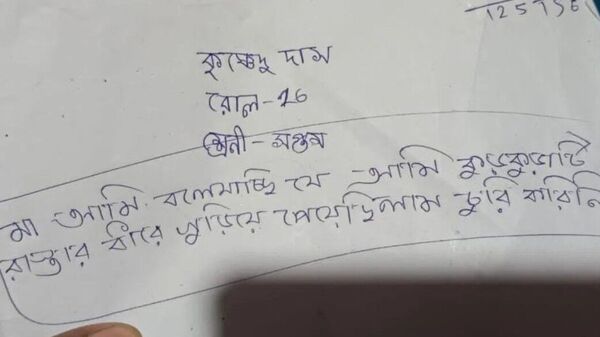 125756
কৃষ্ণেন্দু দাস
রোল-26
শ্রেনী-সপ্তম
মা আমি বলেযাচ্ছি যে আমি কুড়কুড়াটি
রাস্তার ধীরে কুড়িয়ে পেয়েছিলাম চুরি করিনি